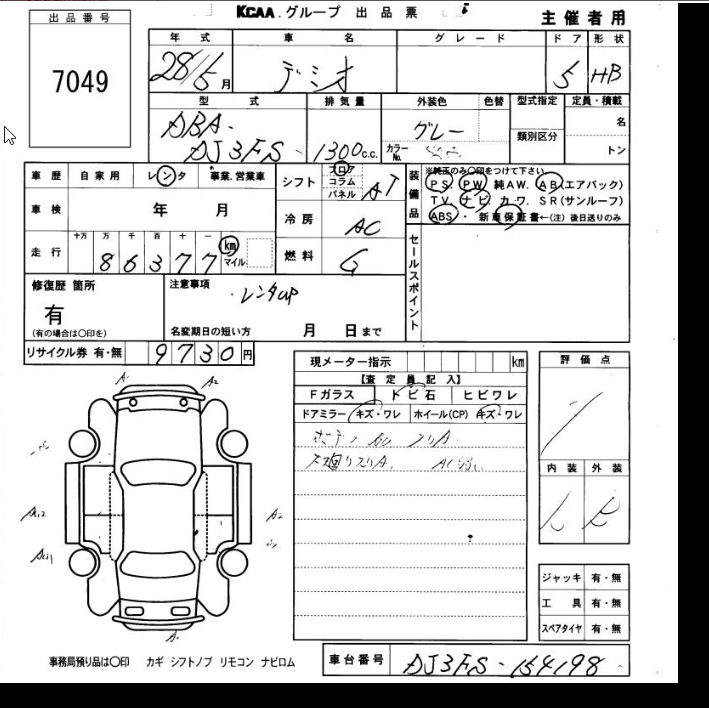 KCAA.グループ 出品票
主催者用
出品番号
7049
年式 車名 グレード ドア 形状
28/5月 デミオ 5 HB
型式 排気量 外装色 色替 型式指定 定員・積載
DBA-
DJ3FS 1300c.c. グレー 類別区分 名
カラーNo. トン
車歴 自家用 レンタ 事業.営業車
シフト フロア コラム パネル AT
車検 年 月
冷房 AC
走行 十万 万 千 百 十 一
86377 km マイル
燃料 G
装備品 ※純正のみ〇印をつけて下さい
PS. PW 純AW. AB(エアバック)
TV. ナビ カワ. SR(サンルーフ)
ABS・ 新車保証書←(注) 後日送りのみ
セールスポイント
修復歴 箇所
有
(有の場合は〇印を)
注意事項
・レンタup
名変期日の短い方 月 日まで
リサイクル券 有・無 9730円
現メーター指示 km
【査定員記入】
Fガラス トビ石 ヒビワレ
ドアミラー キズ・ワレ ホイール(CP) キズ・ワレ
評価点
内装 外装
A A2
A2
A
ジャッキ 有・無
工具 有・無
スペアタイヤ 有・無
事務局預り品は〇印 カギ シフトノブ リモコン ナビロム
車台番号 DJ3FS-154198